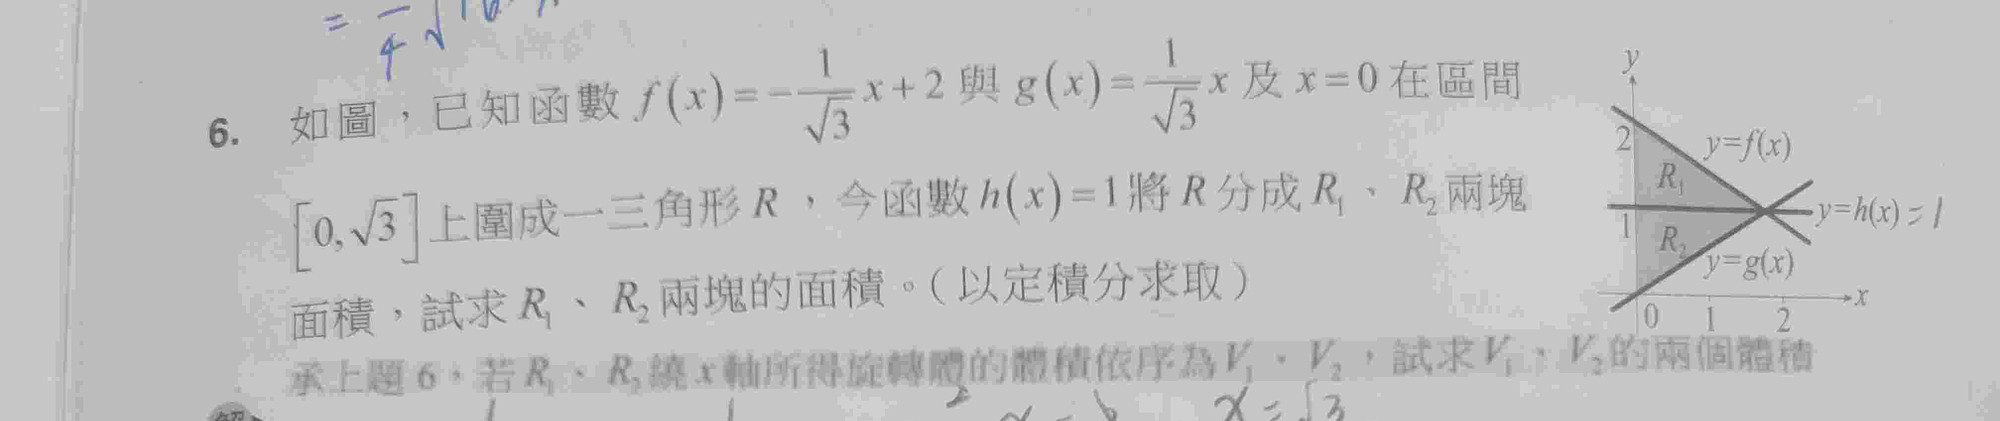 6. 如圖，已知函數 f(x)=-\frac{1}{\sqrt{3}}x+2 與 g(x)=\frac{1}{\sqrt{3}}x 及 x=0 在區間
[0,\sqrt{3}] 上圍成一三角形 R ，今函數 h(x)=1 將 R 分成 R₁ 、 R₂ 兩塊
面積，試求 R₁ 、 R₂ 兩塊的面積。（以定積分求取）
承上題 6，若 R₁ 、 R₂ 繞 x 軸所得旋轉體的體積依序為 V₁ 、 V₂ ，試求 V₁ 、 V₂ 的兩個體積
x=\sqrt{3}
y
2
y=f(x)
R₁
1
y=h(x)=1
R₂
y=g(x)
0 1 2
x